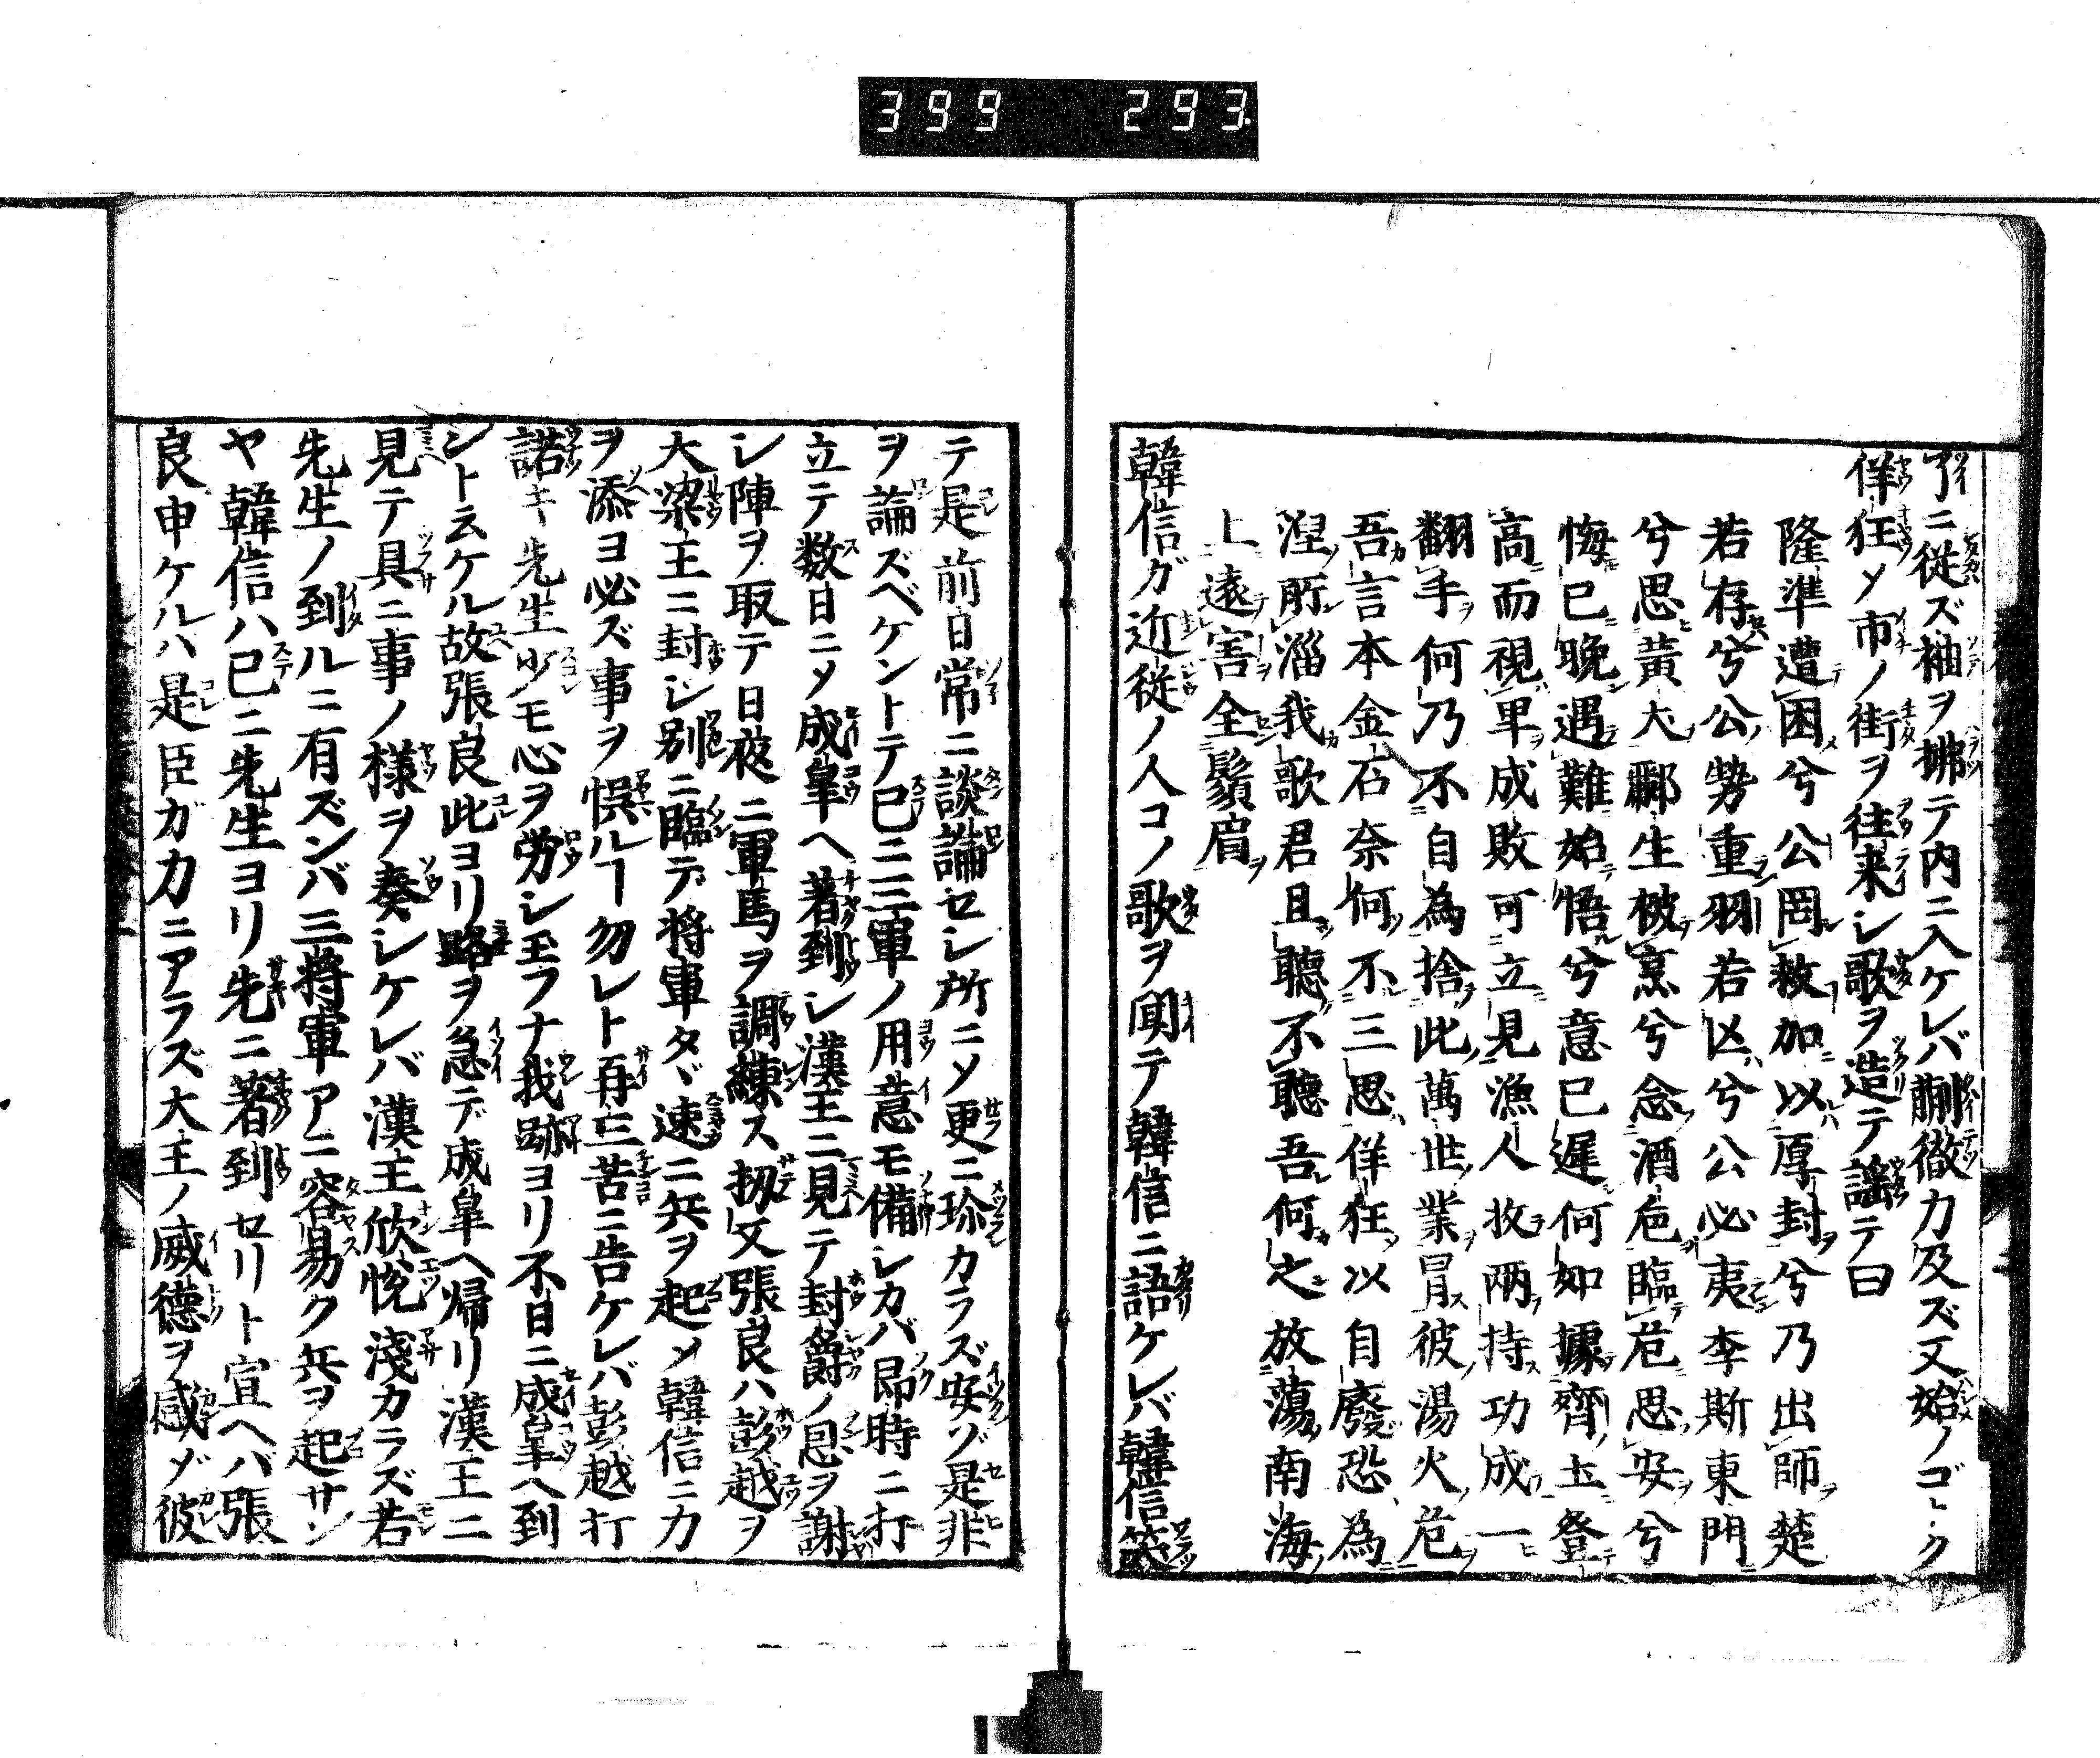 399 293.
了ニ従ズ袖ヲ拂テ内ニ入ケレバ蒯徹力及ズ又始ノゴヽク
佯狂メ市ノ街ヲ往来シ歌ヲ造テ謡テ曰
隆準遭困兮公罔救加以厚封兮乃出師楚
若存兮公勢重羽若亾兮公必夷李斯東門
兮思黄犬酈生被烹兮念酒危臨危思安兮
悔已晩遇難始悟兮意已遅何如據齊土登
高而視卑成敗可立見漁人收兩持功成一
翻手何乃不自為捨此萬世業冒彼湯火危
吾言本金石奈何不三思佯狂以自廢恐為
涅所淄我歌君且聴不聴吾何之放蕩南海
上遠害全鬚眉
韓信ガ近従ノ人コノ歌ヲ聞テ韓信ニ語ケレバ韓信笑
テ是前日常ニ談論セシ所ニメ更ニ珍カラズ安ゾ是非
ヲ論ズベケントテ已ニ三軍ノ用意モ備シカバ昂時ニ打
立テ数日ニメ成皐ヘ著到シ漢王ニ見テ封爵ノ恩ヲ謝
シ陣ヲ取テ日夜ニ軍馬ヲ調練ス扨又張良ハ彭越ヲ
大梁王ニ封シ別ニ臨デ将軍タヾ速ニ兵ヲ起メ韓信ニ力
ヲ添ヨ必ズ事ヲ悞ルヿ勿レト再三苦ニ告ケレバ彭越打
諾キ先生少モ心ヲ労シ玉フナ我跡ヨリ不日ニ成皐ヘ到
ント云ケル故張良此ヨリ路ヲ急デ成皐ヘ帰リ漢王ニ
見テ具ニ事ノ様ヲ奏シケレバ漢王欣悦淺カラズ若
先生ノ到ルニ有ズンバ三将軍アニ容易ク兵ヲ起サン
ヤ韓信ハ已ニ先生ヨリ先ニ著到セリト宣ヘバ張
良申ケルハ是臣ガ力ニアラズ大王ノ威徳ヲ感ゾ彼